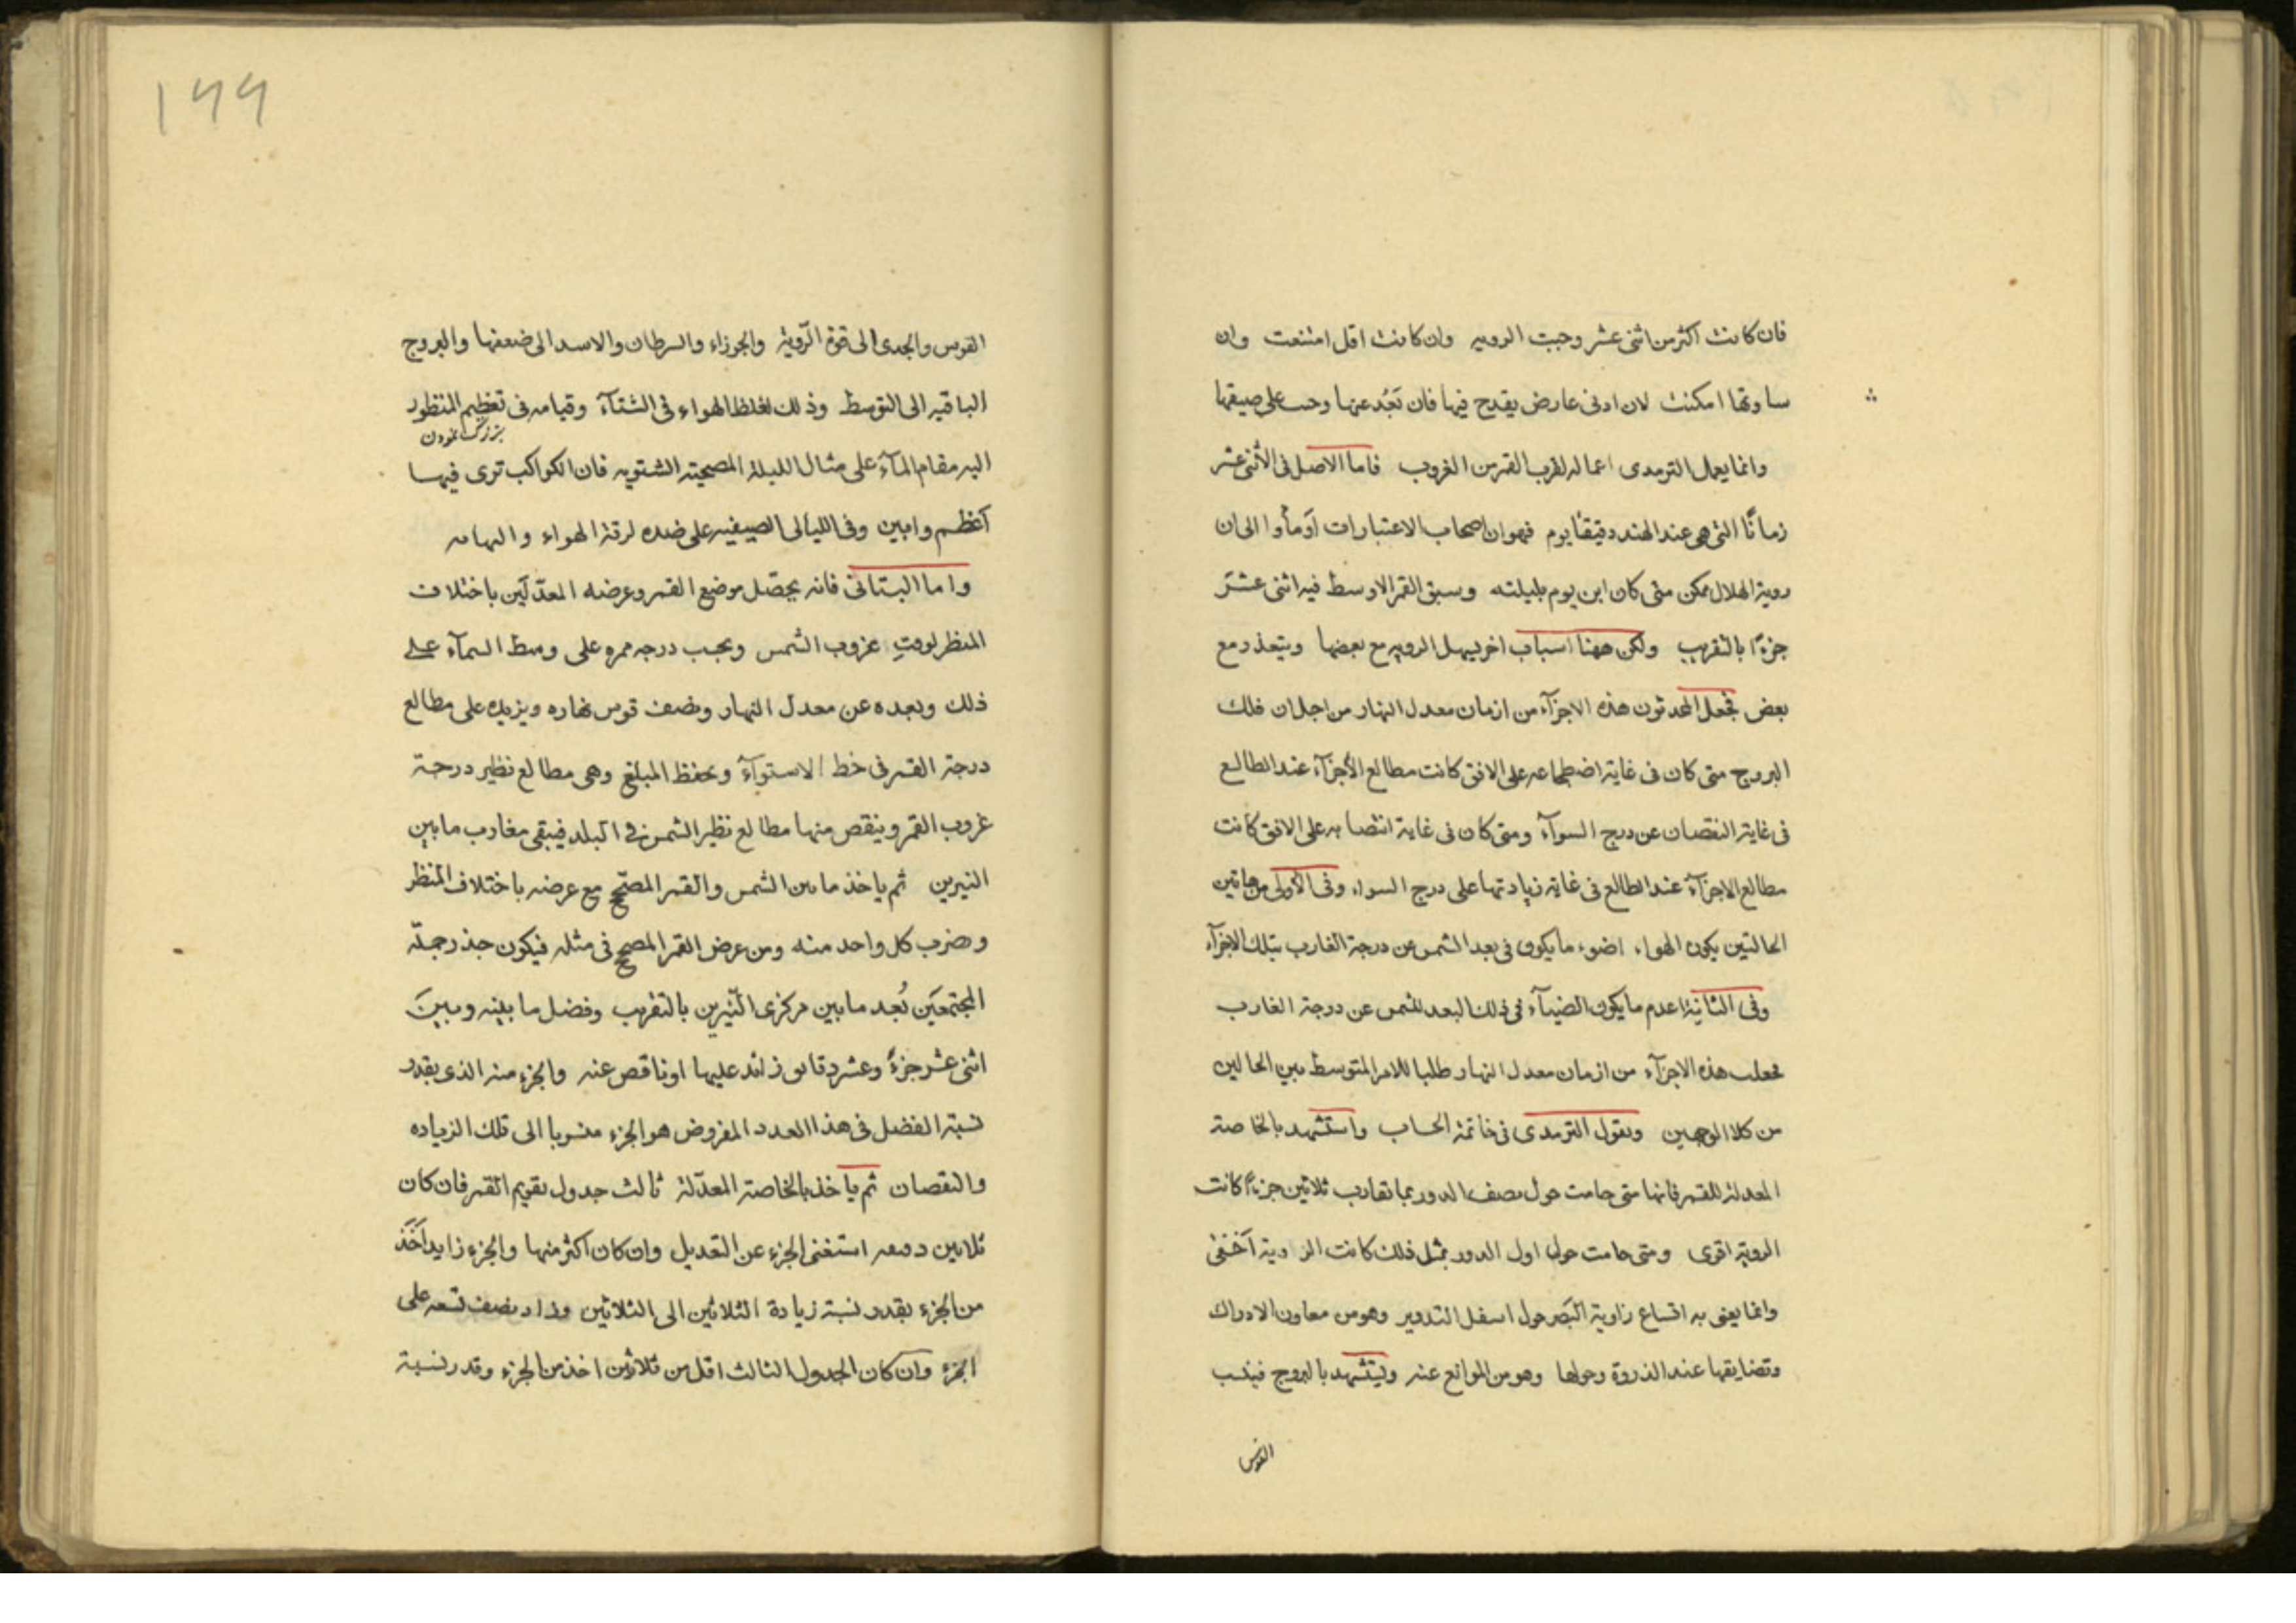 فان كانت اكثر من اثنى عشر وجبت الرويه وان كانت اقل امتنعت وان
ساوتها امكنت لان ادنى عارض يقدح فيها فان بَعُد عنها وجب على صيقها
وانما يعمل الترمدى اعماله لقرب القمر من الغروب فاما الاصل فى الأثنى عشر
زمانًا التى هى عند الهند دقيقتا يوم فهو ان اصحاب الاعتبارات اَومأوا الى ان
روية الهلال ممكن متى كان ابن يوم بليلته وسبق القمر الاوسط فيه اثنى عشَر
جزءًا بالتقريب ولكن ههنا اسباب اخر يسهل الرويه مع بعضها ويتعذر مع
بعض فجعل المحدثون هذه الاجزآء من ازمان معدل النهار من اجل ان فلك
البروج متى كان فى غاية اضطجاعه على الافق كانت مطالع الأجزآء عند الطالع
فى غاية النقصان عن درج السوآء ومتى كان فى غاية انتصابه على الافق كانت
مطالع الاجزآء عند الطالع فى غاية زيادتها على درج السواء وفى الأولى من هاتين
الحالتين يكون الهواء اضوء ما يكون فى بعد الشمس عن درجة الغارب بتلك الاجزآء
وفى الثانية اعدم ما يكون الضيآء فى ذلك البعد للشمس عن درجة الغارب
فجعلت هذه الاجزآء من ازمان معدل النهار طلبا للامر المتوسط بين الحالين
من كلا الوجهين ويقول الترمدى فى خاتمة الحساب واستشهد بالخاصة
المعدلة للقمر فانها متى حامت حول نصف الدور بما تقارب ثلاثين جزءًا كانت
الروية اقوى ومتى حامت حول اول الدور بمثل ذلك كانت الروية اَخفى
وانما يعنى به اتساع زاوية البَصر حول اسفل التدوير وهو من معاون الادراك
وتضايقها عند الذروة وحولها وهو من الموانع عنه وليتشهد بالبروج فينسب
القوس
١٩٩
القوس والجدى الى قوة الرّوية والجوزاء والسرطان والاسد الى ضعفها والبروج
الباقيه الى التوسط وذلك لغلظ الهواء فى الشتآء وقيامه فى تعظيم المنظور
بزرگ نمودن
اليه مقام المآء على مثال الليلة المصحية الشتويه فان الكواكب ترى فيها
اَعظم وابين وفى الليالى الصيفيه على ضده لرقة الهواء
واما البتانى فانه يحصّل موضع القمر وعرضه المعدّلَين باختلاف
المنظر لوقتِ غروب الشمس ويحسب درجه ممره على وسط السمآء على
ذلك وبعده عن معدل النهار ونصف قوس نهاره ويزيده على مطالع
درجة القمر فى خط الاستوآء ويحفظ المبلغ وهى مطالع نظير درجة
غروب القمر وينقص منها مطالع نظير الشمس فى البلد فيبقى مغارب ما بين
النيرين ثم ياخذ ما بين الشمس والقمر المصحّح مع عرضه باختلاف المنظر
وضرب كل واحد منه ومن عرض القمر المصحح فى مثله فيكون جذر جملة
المجتمعَين بُعد ما بين مركزى النيّرين بالتقريب وفضل ما بينه وبينَ
اثنى عشر جزءً وعشر دقايق زائد عليها او ناقص عنه والجزء منه الذى بقدر
نسبة الفضل فى هذا العدد المفروض هو الجزء منسوبا الى تلك الزياده
والنقصان ثم ياخذ بالخاصة المعدّلة ثالث جدول تقويم القمر فان كان
ثلاثين دقيقه استغنى الجزء عن التعديل وان كان اكثر منها والجزء زايد اَخَذَ
من الجزء بقدر نسبة زيادة الثلاثين الى الثلاثين وزاد نصف تسعه على
الجزء وان كان الجدول الثالث اقل من ثلاثين اخذ من الجزء وقدر نسبة